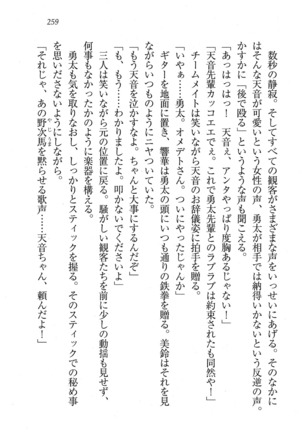 259
数秒の静寂。そしてすべての観客がさまざまな声をいっせいにあげる。そのなかに
はそんな天音が可愛いという女性の声、勇太が相手では納得いかないという反逆の声。
かすかに「後で殴る」というような声も聞こえる。
「あっはっはっ！　天音ぇ、アンタやっぱり度胸あるじゃない！」
「天音先輩カッコエエでぇ。これで勇太先輩とのラブラブは約束されたも同然や！」
チームメイトは笑いながら天音のお辞儀姿に拍手を贈る。
「いやぁ……勇太、オメデトさん。ついにやったじゃんか」
ギターを地面に置き、響華は勇太の頭にいつも通りの鉄拳を贈る。美鈴はそれを見
ながらいつものようにニヤついていた。
「もう天音を泣かすなよ。ちゃんと大事にするんだぞ」
「も、もう……わかりましたよ。叩かないでくださいよ」
三人は笑いながら元の位置に戻る。騒がしい観客たちを前に少しの動揺も見せず、
何事もなかったかのように楽器を構える。
勇太も気を取りなおし、しっかりとスティックを握る。そのスティックでの秘め事
を思いださないようにしながら。
「それじゃ、あの野次馬を黙らせる歌声……天音ちゃん、頼んだよー！」